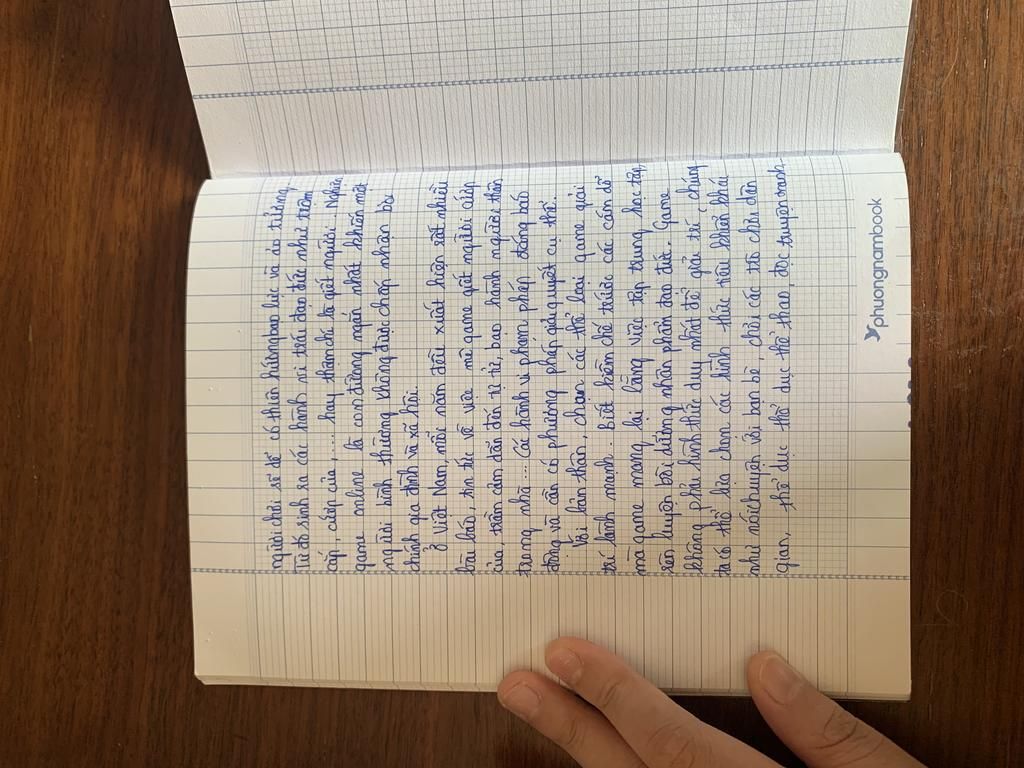 người chơi sẽ dễ có thiên hướng bạo lực và ảo tưởng.
Từ đó sinh ra các hành vi trái đạo đức như trộm
cắp, cướp của,... hay thậm chí là giết người. Nghiện
game online là con đường ngắn nhất khiến một
người bình thường không được chấp nhận bởi
chính gia đình và xã hội.
Ở Việt Nam, mỗi năm đều xuất hiện rất nhiều
bài báo, tin tức về việc mê game giết người cướp
của, trầm cảm dẫn đến tự tử, bạo hành người thân
trong nhà... Các hành vi phạm pháp đáng báo
động và cần có phương pháp giải quyết cụ thể.
Với bản thân, chọn các thể loại game giải
trí lành mạnh. Biết kiềm chế trước các cám dỗ
mà game mang lại bằng việc tập trung học tập,
rèn luyện bồi dưỡng nhân phẩm đạo đức. Game
không phải hình thức duy nhất để giải trí, chúng
ta có thể lựa chọn các hình thức tiêu khiển khác
như nói chuyện với bạn bè, chơi các trò chơi dân
gian, thể dục thể dục thể thao, đọc truyện tranh.
phuongnambook